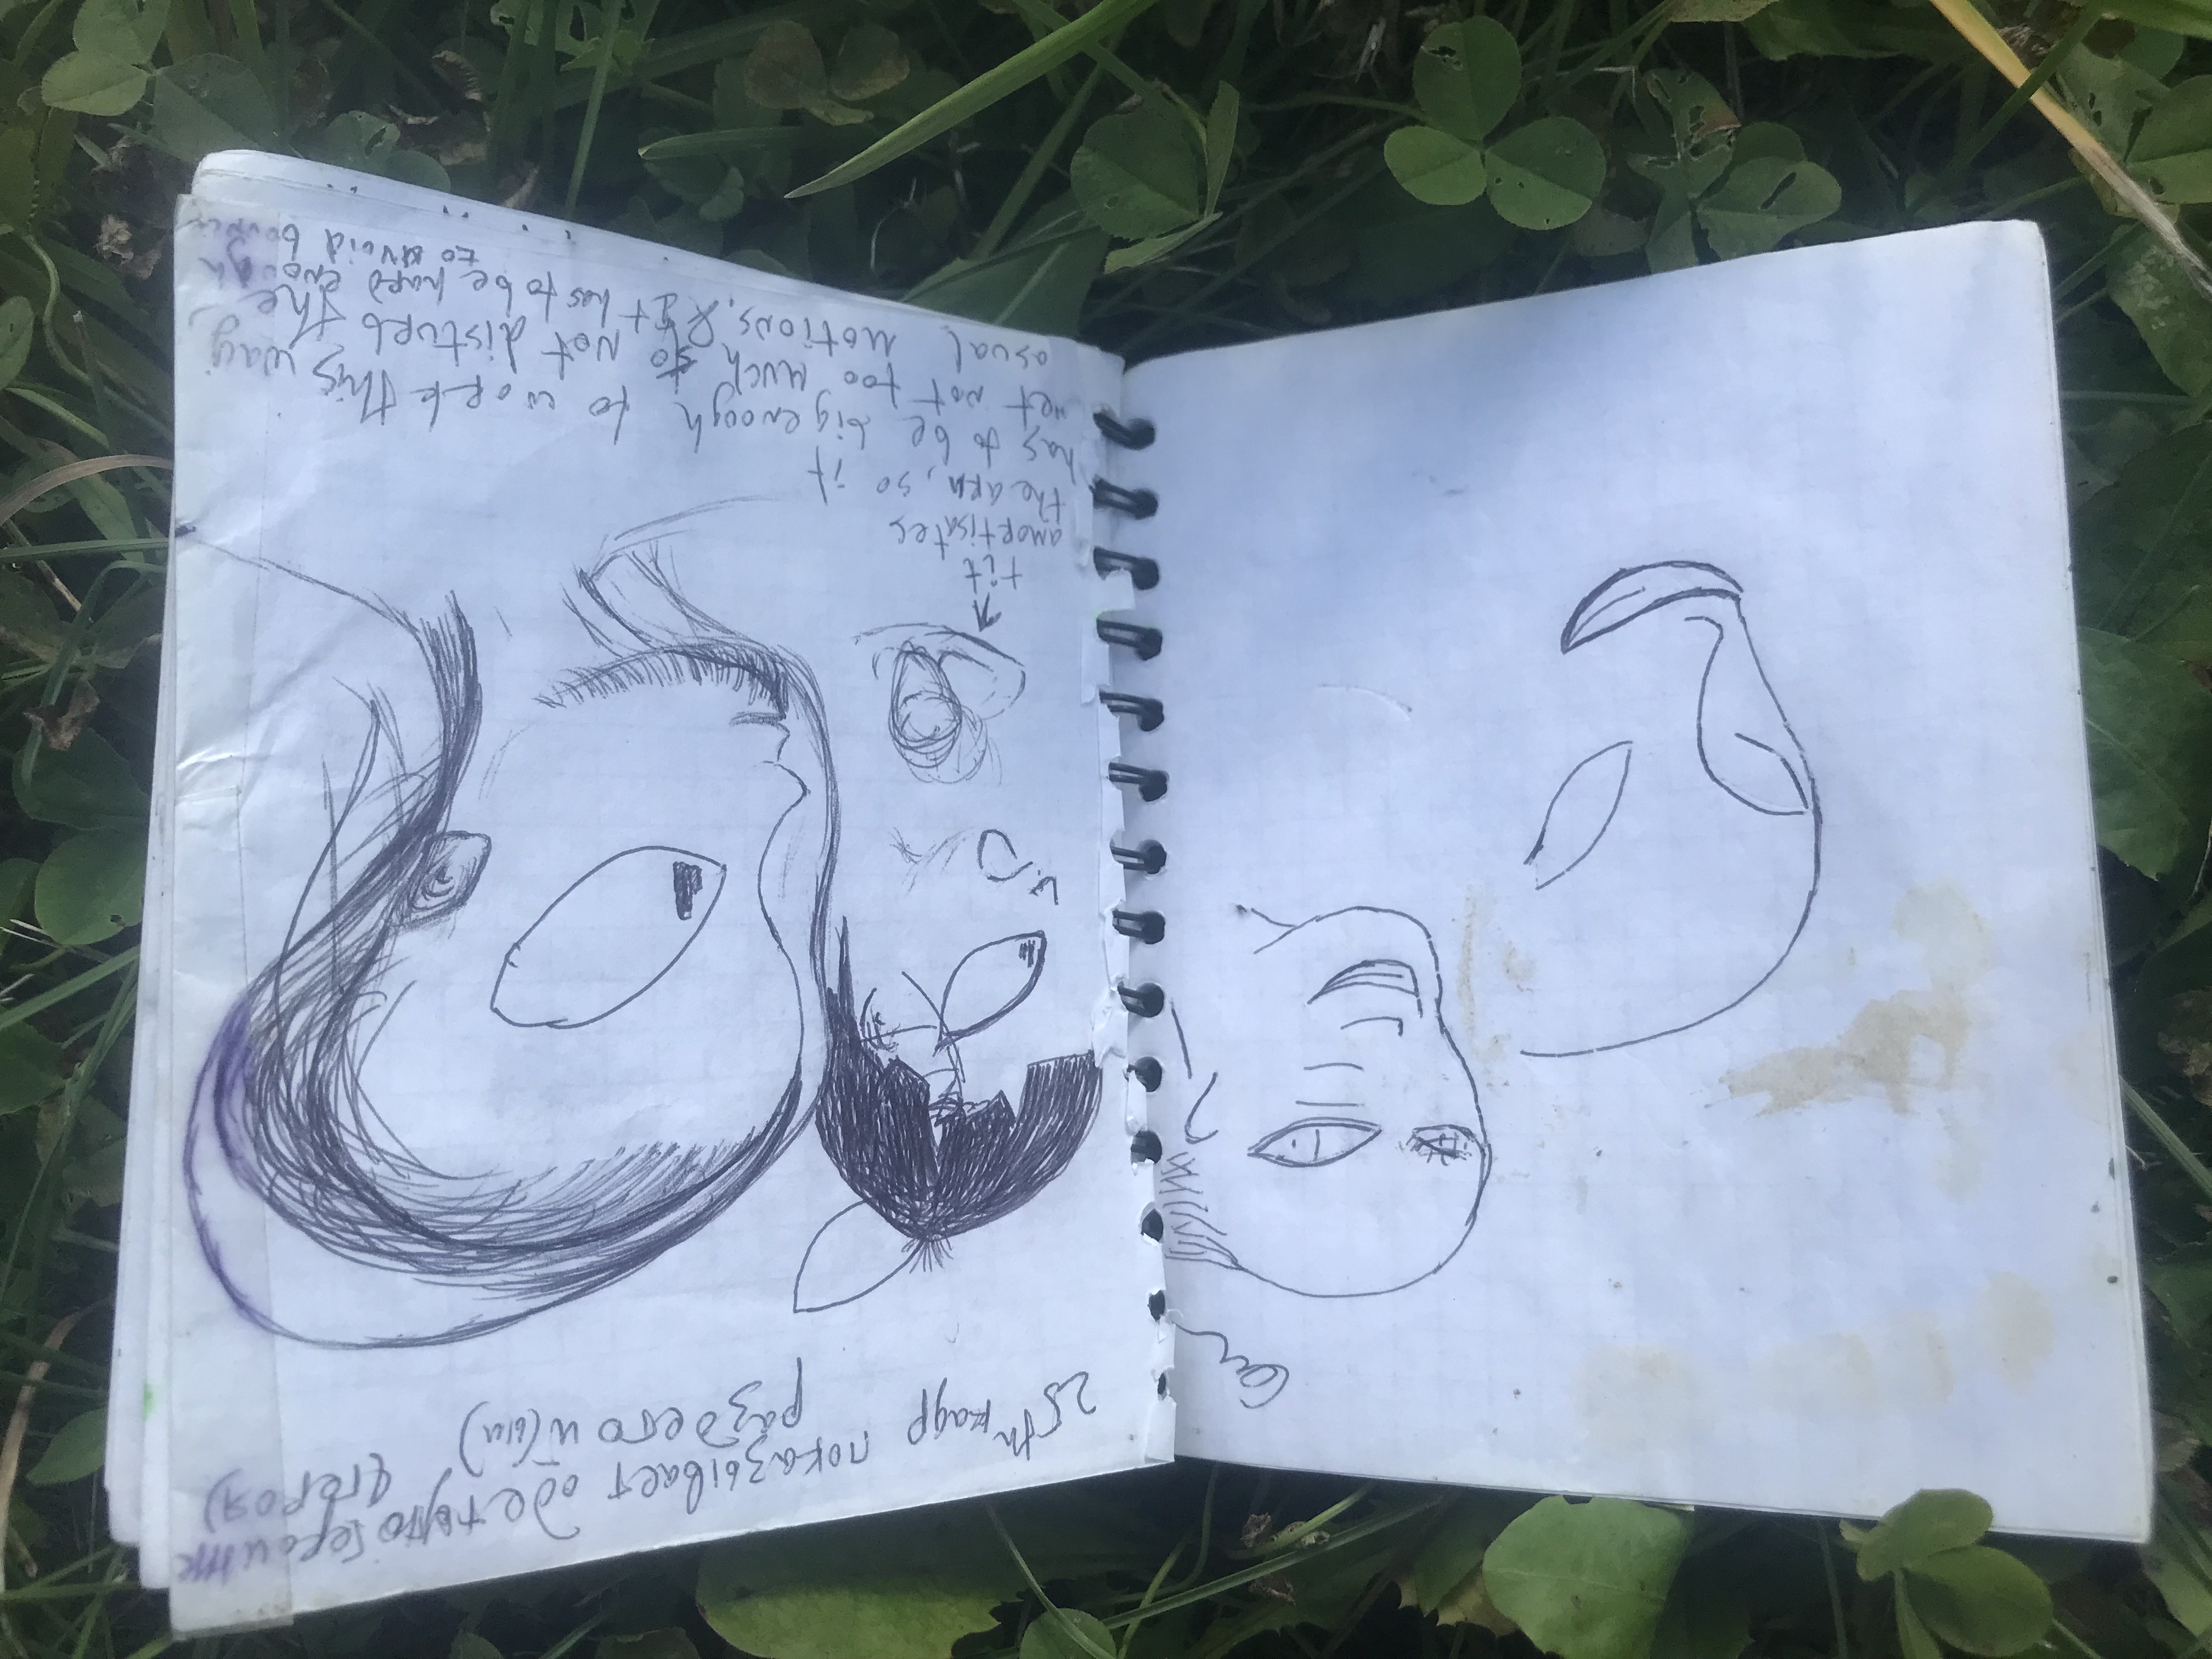 25th кадр показывает одетую героиню
раздетой(ым) (героя)
tit
amortisates
the arm, so it
has to be big enogh to work this way
yet not too much so Not disturb the
asual motions. & It has to be hard enough
to avoid